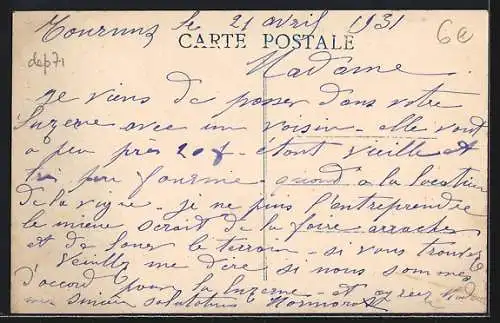 Tournus le 21 avril 1931
CARTE POSTALE
6e
dep 71
Madame
je viens de passer dans votre
luzerne avec un voisin - elle vaut
a peu près 20 f - étant vieille et
très peu fournie - quand a la location
de la vigne - je ne puis l'entreprendre
le mieux serait de la faire arracher
et de louer le terrain - si vous trouvez
veuillez me dire si nous sommes
d'accord pour la luzerne - et agréez Madame
mes sincères salutations